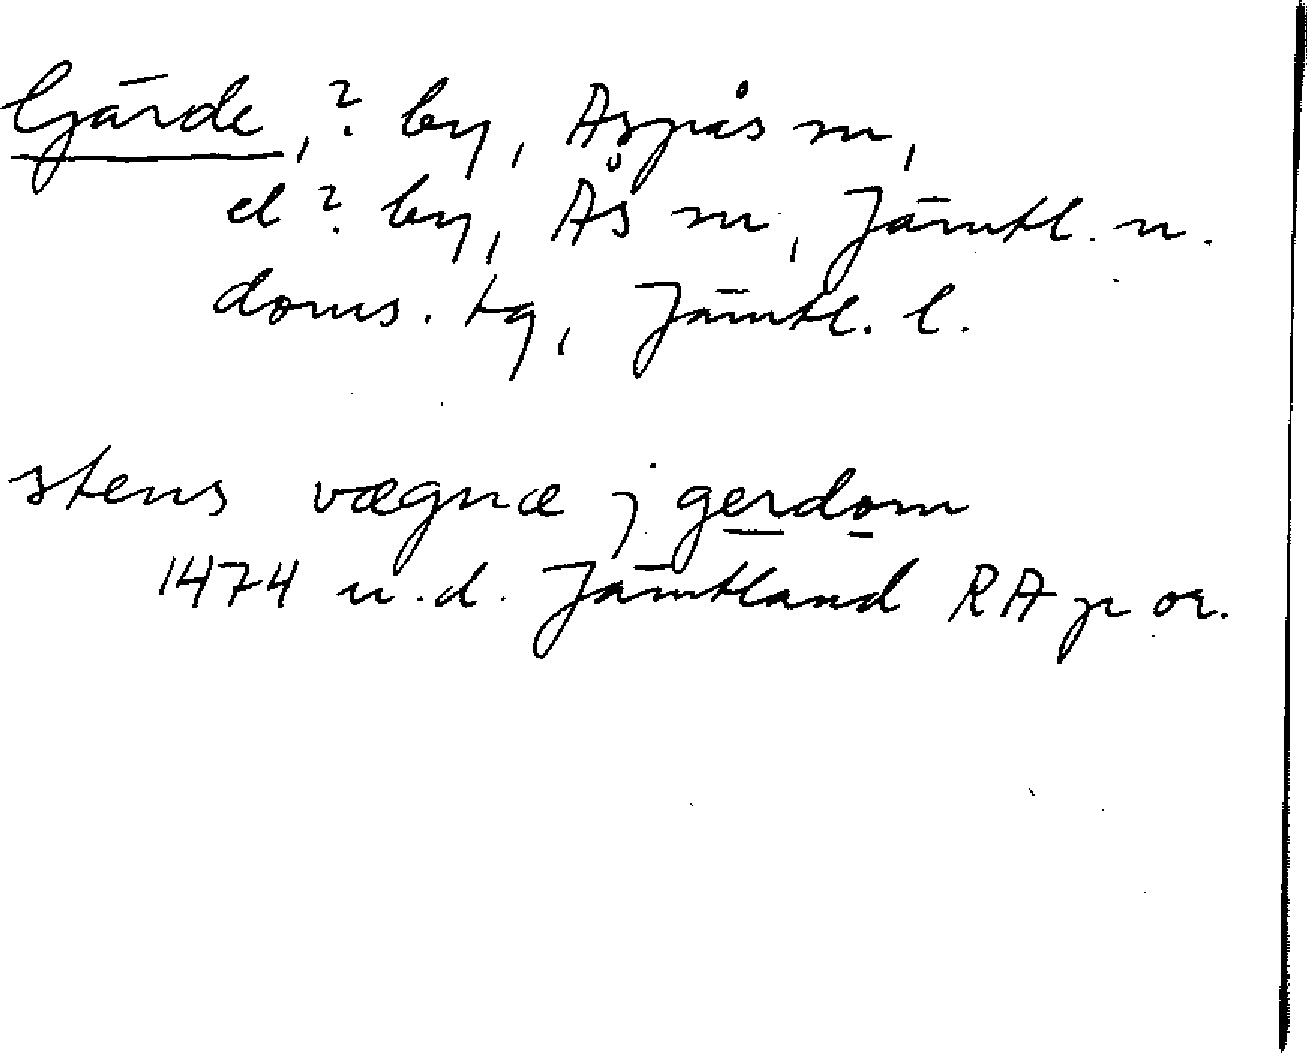 Gärde, ? by, Aspås sn,
el ? by, Ås sn, Jämtl. n.
doms. tg, Jämtl. l.
stens vægnæ j gerdom
1474 u.d. Jämtland RAp or.